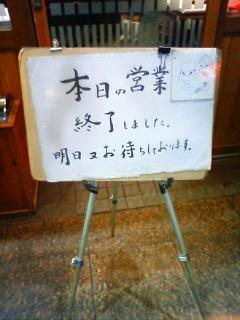 本日の営業
終了しました。
明日又お待ちしております。